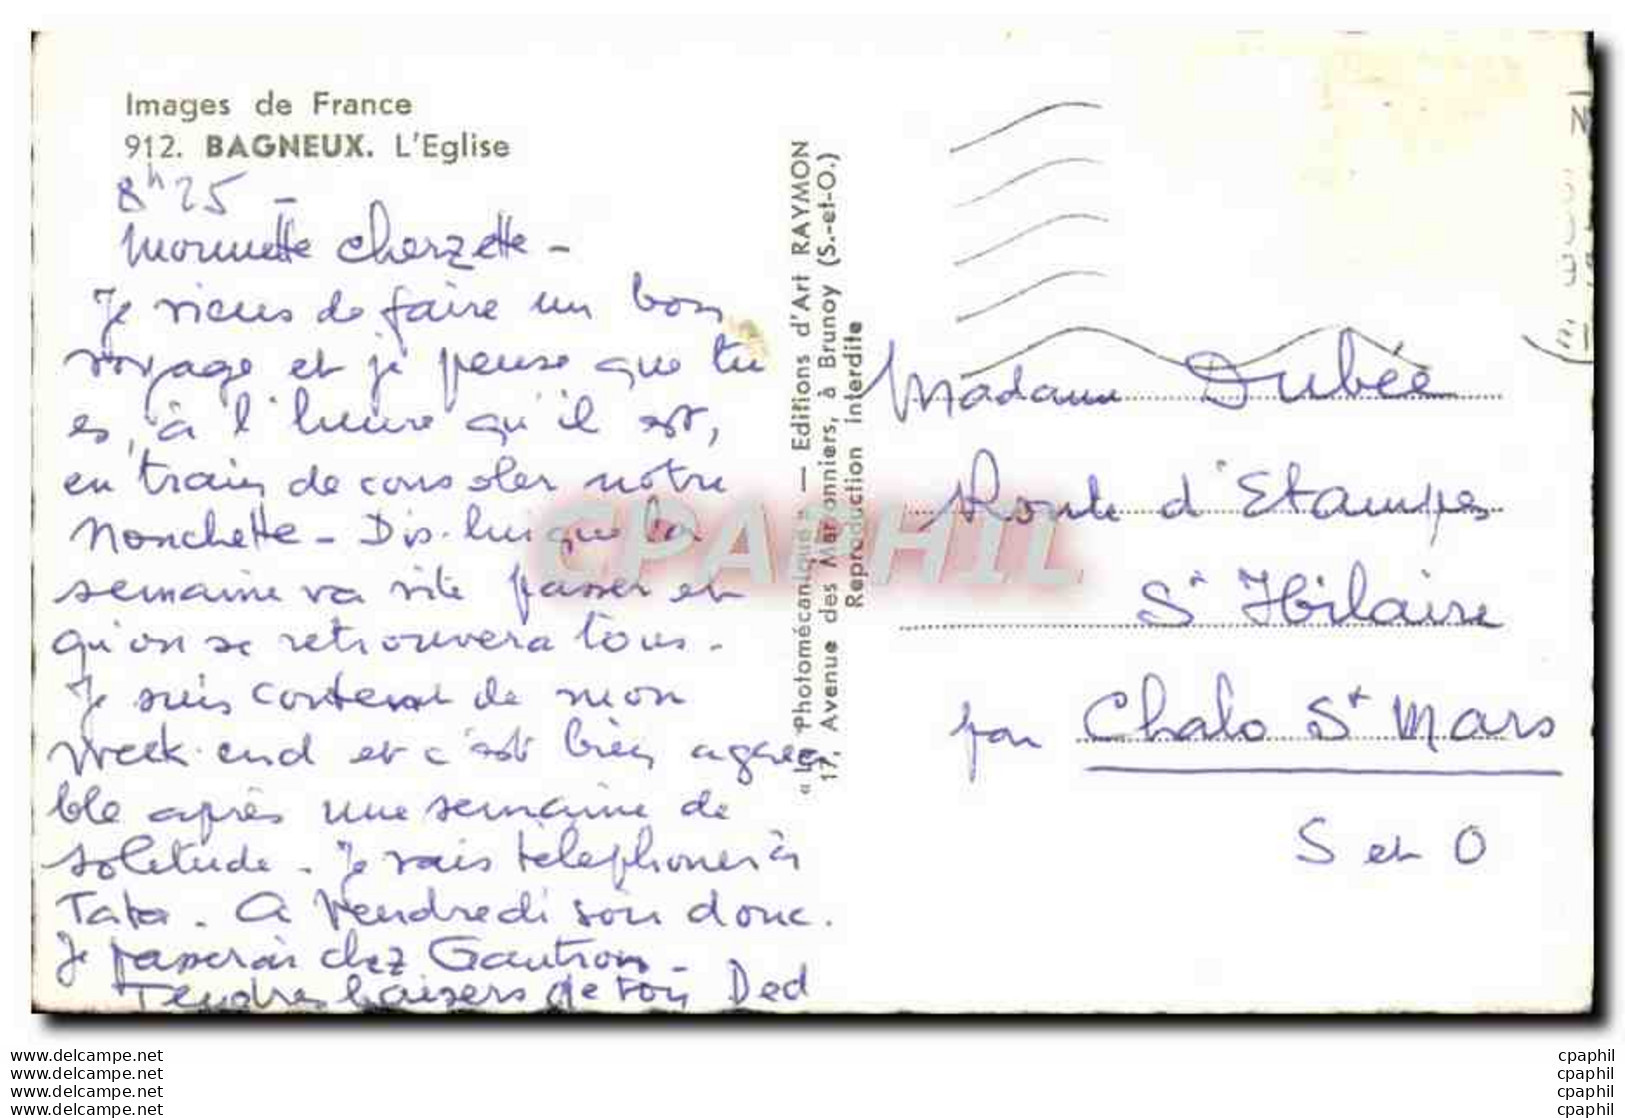 Images de France
912. BAGNEUX. L'Eglise
8h25 -
Moumette cherzette -
Je viens de faire un bon
voyage et je pense que tu
es, à l'heure qu'il est,
en train de consoler notre
Nonchette - Dis-lui que la
semaine va vite passer et
qu'on se retrouvera tous.
Je suis contente de mon
week-end et c'est bien agréa
ble après une semaine de
solitude. Je vais téléphoner à
Tata. A Vendredi soir donc.
Je passerai chez Gautron -
Tendres baisers de ton Ded
« La Photomécanique » — Editions d'Art RAYMON
17, Avenue des Marronniers, à Brunoy (S.-et-O.)
Reproduction interdite
Madame Dubée
Route d'Etampes
St Hilaire
par Chalo St Mars
S et O
CPAPHIL
www.delcampe.net
www.delcampe.net
www.delcampe.net
www.delcampe.net
cpaphil
cpaphil
cpaphil
cpaphil